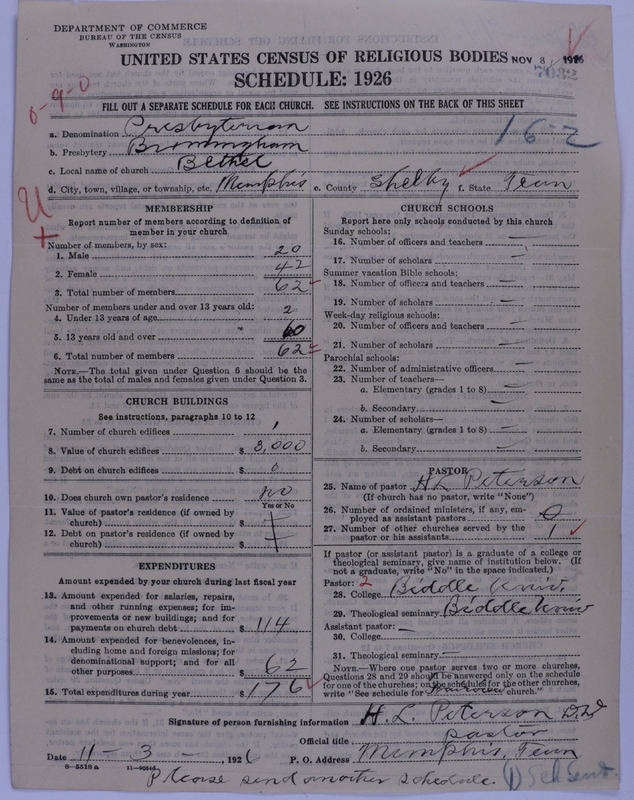 DEPARTMENT OF COMMERCE
BUREAU OF THE CENSUS
WASHINGTON
UNITED STATES CENSUS OF RELIGIOUS BODIES NOV 8 1926
SCHEDULE: 1926
6-9-0
FILL OUT A SEPARATE SCHEDULE FOR EACH CHURCH. SEE INSTRUCTIONS ON THE BACK OF THIS SHEET
a. Denomination Presbyterian
16-2
b. Presbytery Birmingham
c. Local name of church Bethel
d. City, town, village, or township, etc. Memphis e. County Shelby f. State Tenn
U
MEMBERSHIP
Report number of members according to definition of
member in your church
Number of members, by sex:
1. Male 20
2. Female 42
3. Total number of members 62
Number of members under and over 13 years old:
4. Under 13 years of age 2
5. 13 years old and over 60
6. Total number of members 62
NOTE.—The total given under Question 6 should be
same as the total of males and females given under Question 3.
CHURCH BUILDINGS
See instructions, paragraphs 10 to 12
7. Number of church edifices 1
8. Value of church edifices $ 3,000
9. Debt on church edifices $ 0
10. Does church own pastor's residence No
Yes or No
11. Value of pastor's residence (if owned by
church) $
12. Debt on pastor's residence (if owned by
church) $
EXPENDITURES
Amount expended by your church during last fiscal year
13. Amount expended for salaries, repairs,
and other running expenses; for im-
provements or new buildings; and for
payments on church debt $ 114
14. Amount expended for benevolences, in-
cluding home and foreign missions; for
denominational support; and for all
other purposes $ 62
15. Total expenditures during year $ 176
CHURCH SCHOOLS
Report here only schools conducted by this church
Sunday schools:
16. Number of officers and teachers —
17. Number of scholars —
Summer vacation Bible schools:
18. Number of officers and teachers —
19. Number of scholars —
Week-day religious schools:
20. Number of officers and teachers —
21. Number of scholars —
Parochial schools:
22. Number of administrative officers —
23. Number of teachers—
a. Elementary (grades 1 to 8) —
b. Secondary —
24. Number of scholars—
a. Elementary (grades 1 to 8) —
b. Secondary —
PASTOR
25. Name of pastor H L Peterson
(If church has no pastor, write "None")
26. Number of ordained ministers, if any, em-
ployed as assistant pastors 0
27. Number of other churches served by the
pastor or his assistants 1
If pastor (or assistant pastor) is a graduate of a college or
theological seminary, give name of institution below. (If
not a graduate, write "No" in the space indicated.)
Pastor: 2
28. College Biddle Univ.
29. Theological seminary Biddle Univ
Assistant pastor: —
30. College
31. Theological seminary
NOTE.—Where one pastor serves two or more churches,
Questions 28 and 29 should be answered only on the schedule
for one of the churches; on the schedules for the other churches,
write "See schedule for church."
Signature of person furnishing information H. L. Peterson D.D
Official title pastor
Date 11-3-, 1926 P. O. Address Memphis, Tenn
8-5518a
Please send another schedule. Sch Sent.